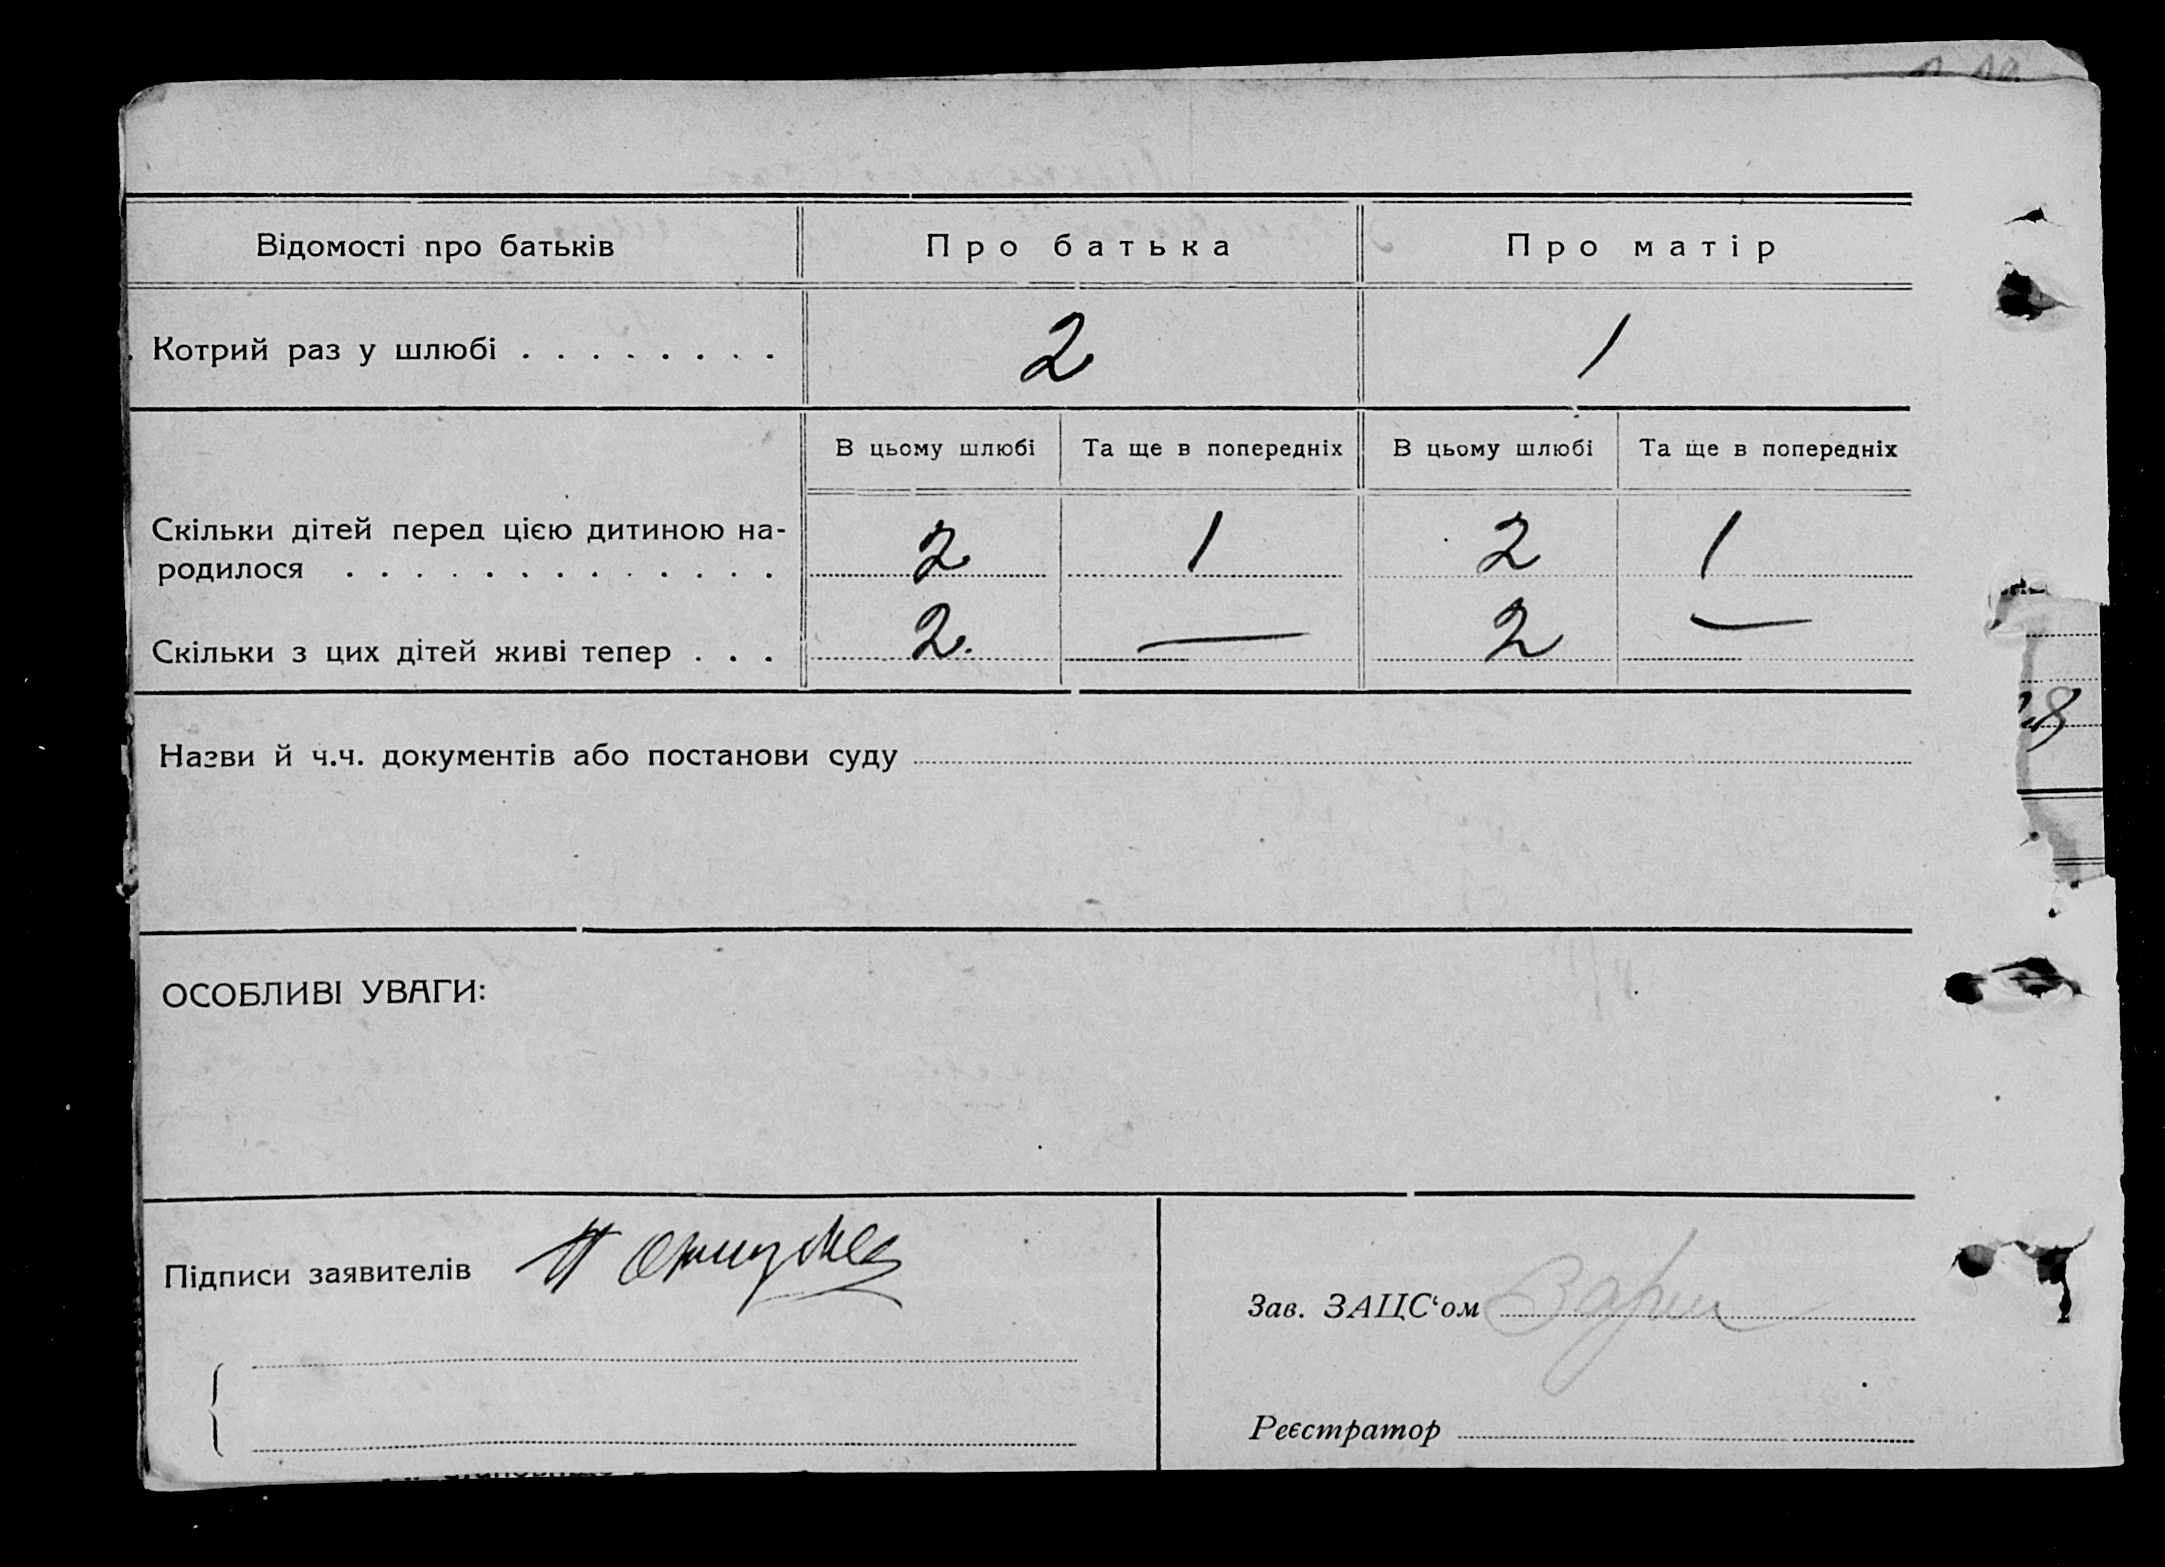 Відомості про батьків Про батька Про матір
Котрий раз у шлюбі . . . . . . . . 2 1
В цьому шлюбі Та ще в попередніх В цьому шлюбі Та ще в попередніх
Скільки дітей перед цією дитиною на-
родилося . . . . . . . . . . . . . 2 1 2 1
Скільки з цих дітей живі тепер . . . 2. — 2 —
Назви й ч.ч. документів або постанови суду
ОСОБЛИВІ УВАГИ:
Підписи заявителів
Зав. ЗАЦС‘ом
Реєстратор